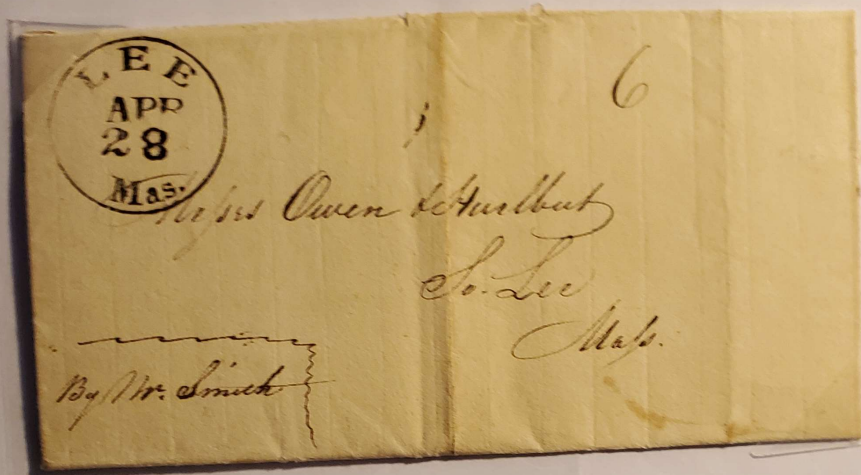 LEE
APR
28
Mas.
6
Messrs Owen & Hurlbut
So. Lee
Mass.
By Mr. Smith